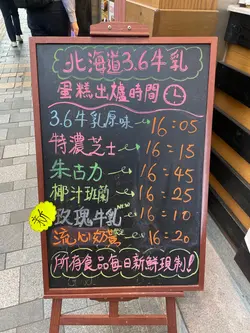 北海道3.6牛乳
蛋糕出爐時間
3.6牛乳原味 16:05
特濃芝士 16:15
朱古力 16:45
椰汁班蘭 16:25
新 玫瑰牛乳 NEW 16:10
流心奶黃 NEW 16:20
所有食品每日新鮮現制!